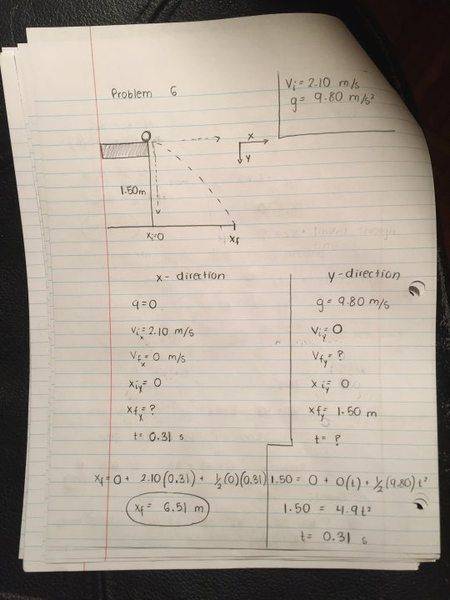 Problem 6
Vi = 2.10 m/s
g = 9.80 m/s²
x
y
1.50m
xi=0
xf
x- direction
a=0
Vix= 2.10 m/s
Vfx= 0 m/s
xiy= 0
xfx= ?
t= 0.31 s
xf= 0 + 2.10(0.31) + ½(0)(0.31)
xf= 6.51 m
y-direction
g= 9.80 m/s
Viy= 0
Vfy= ?
xiy= 0
xfy= 1.50 m
t= ?
1.50= 0 + 0(t) + ½(9.80)t²
1.50 = 4.9t²
t= 0.31 s